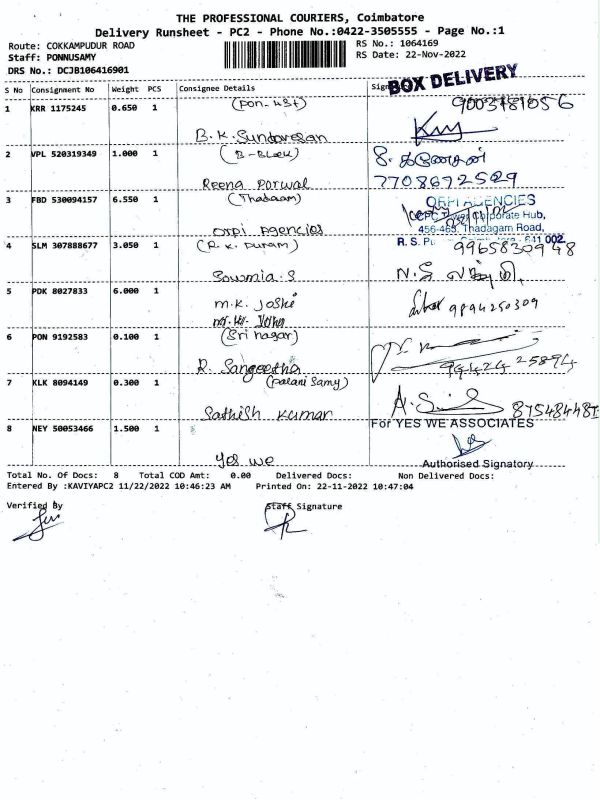 THE PROFESSIONAL COURIERS, Coimbatore
Delivery Runsheet - PC2 - Phone No.:0422-3505555 - Page No.:1
Route: COKKAMPUDUR ROAD
RS No.: 1064169
Staff: PONNUSAMY
RS Date: 22-Nov-2022
DRS No.: DCJB106416901
BOX DELIVERY
S No Consignment No Weight PCS Consignee Details
1 KRR 1175245 0.650 1
B.K. Sundaresan
2 VPL 520319349 1.000 1 (B-Block)
7708672529
Reena Porwal
3 FBD 530094157 6.550 1
ORPI AGENCIES
Corporate Hub,
Thadagam Road,
orpi Agencies
641 002.
4 SLM 307888677 3.050 1 (R.K. Puram)
9965830948
Sowmia S
5 PDK 8027833 6.000 1 M.K. Joshi
9894250309
6 PON 9192583 0.100 1 (Sri nagar)
94424 25894
R. Sangeetha
7 KLK 8094149 0.300 1 (Palani Samy)
Sathish Kumar
For YES WE ASSOCIATES
8 NEY 50053466 1.500 1
Yes we
Authorised Signatory
Total No. Of Docs: 8 Total COD Amt: 0.00 Delivered Docs: Non Delivered Docs:
Entered By :KAVIYAPC2 11/22/2022 10:46:23 AM Printed On: 22-11-2022 10:47:04
Verified By
Staff Signature